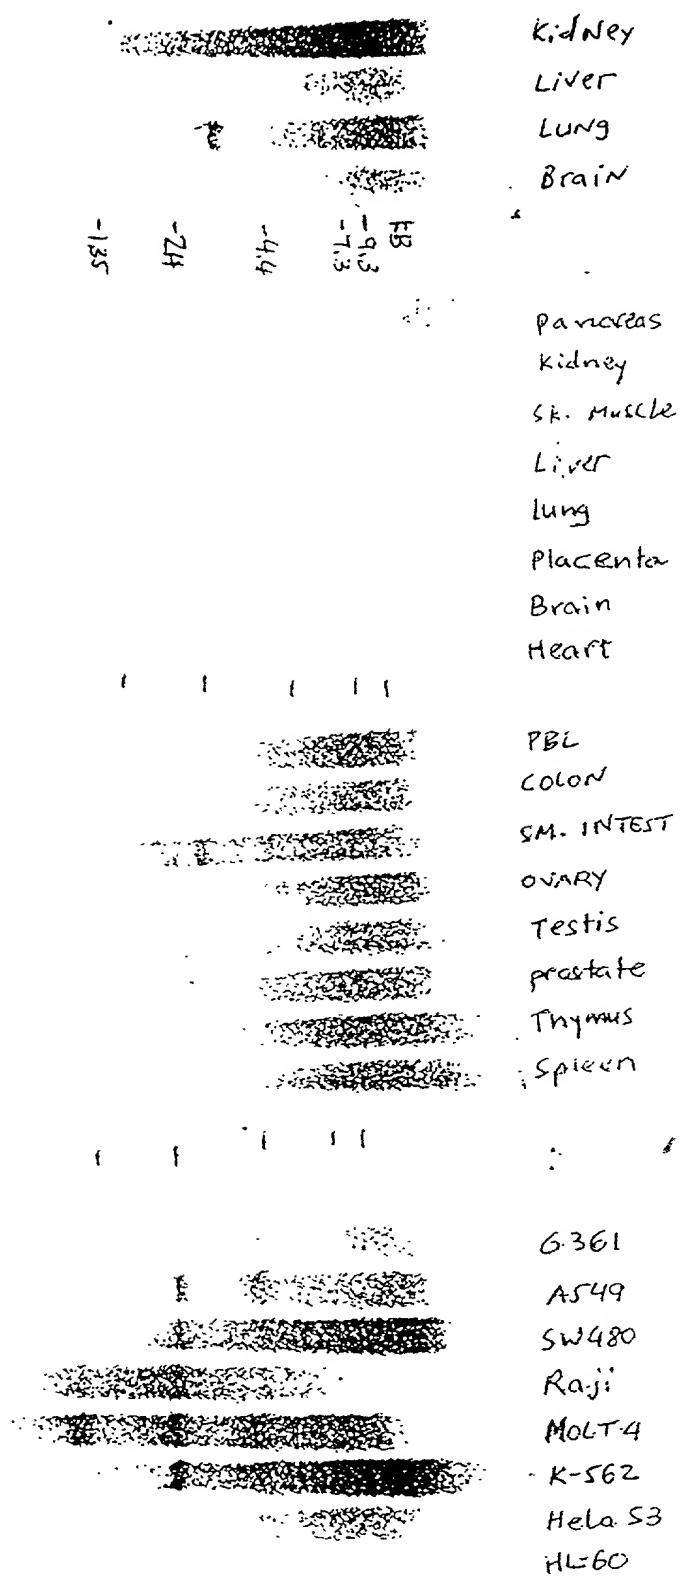 Kidney
Liver
Lung
Brain
-1.35
-2.4
-4.4
-7.3
-9.3
KB
Pancreas
Kidney
Sk. Muscle
Liver
Lung
Placenta
Brain
Heart
PBL
COLON
SM. INTEST
OVARY
Testis
prostate
Thymus
Spleen
G.361
A549
SW480
Raji
MOLT-4
K-562
Hela S3
HL-60